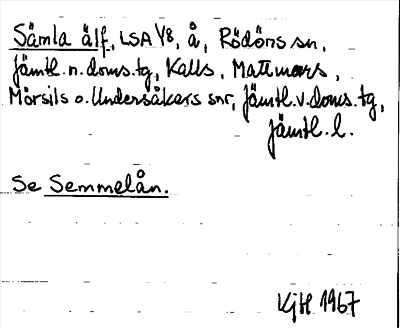 Sämla älf, LSA V8, å, Rödöns sn,
Jämtl. n. doms. tg, Kalls, Mattmars,
Mörsils o. Undersåkers snr, Jämtl. v. doms. tg,
Jämtl. l.
Se Semmelån.
KjH 1967